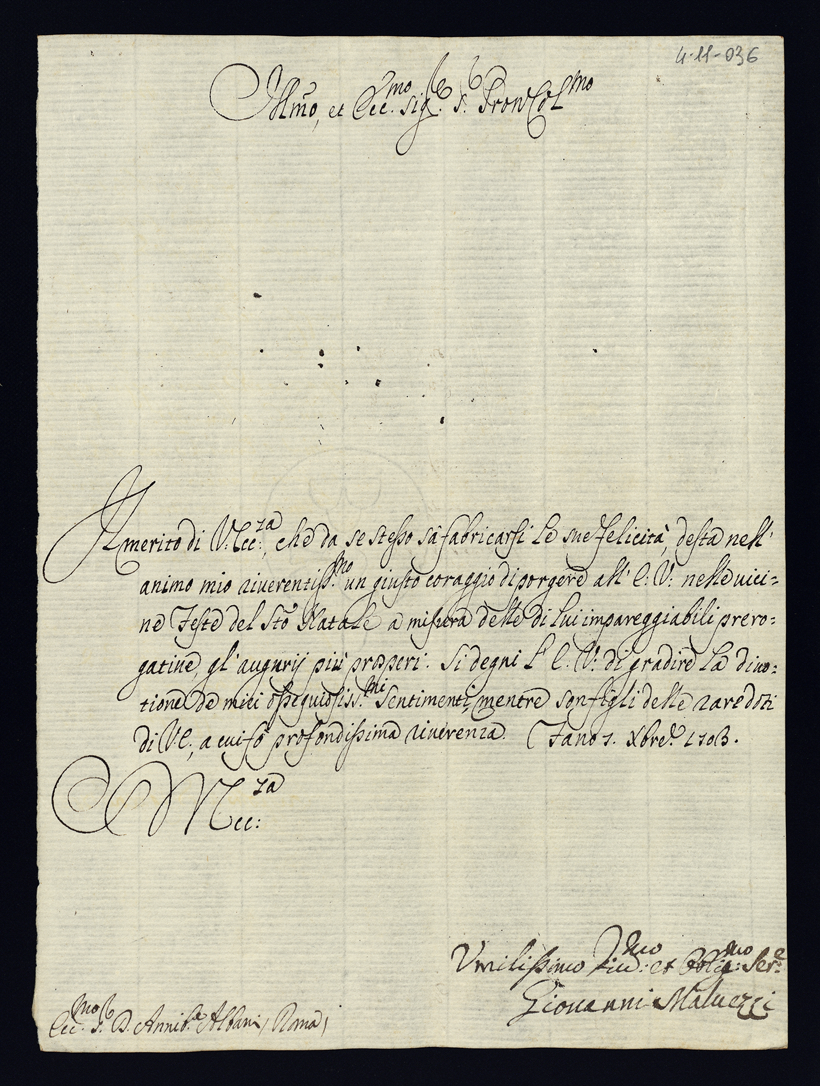 4-11-036
Illmo, et Ecc.mo Sig.r S.r Pron Col.mo
Il merito di V. Ecc.za, che da se stesso sà fabricarsi le sue felicità, desta nell'
animo mio riverentiss.mo un giusto coraggio di porgere all' E: V: nelle vici=
ne Feste del Sto Natale a misura delle di lui impareggiabili prero=
gative, gl'augurij più prosperi. Si degni l' E. V: di gradire la divo=
tione de miei ossequiosiss.mi sentimenti, mentre son figli delle rare doti
di V E., a cui fò profondissima riverenza. Fano 7. Xbre. 1703.
V Ecc:za
Umilissimo Div.mo: et Oblig.mo: Ser.e
Giovanni Malvezzi
Ecc.mo S.r D. Annib.e Albani, Roma,